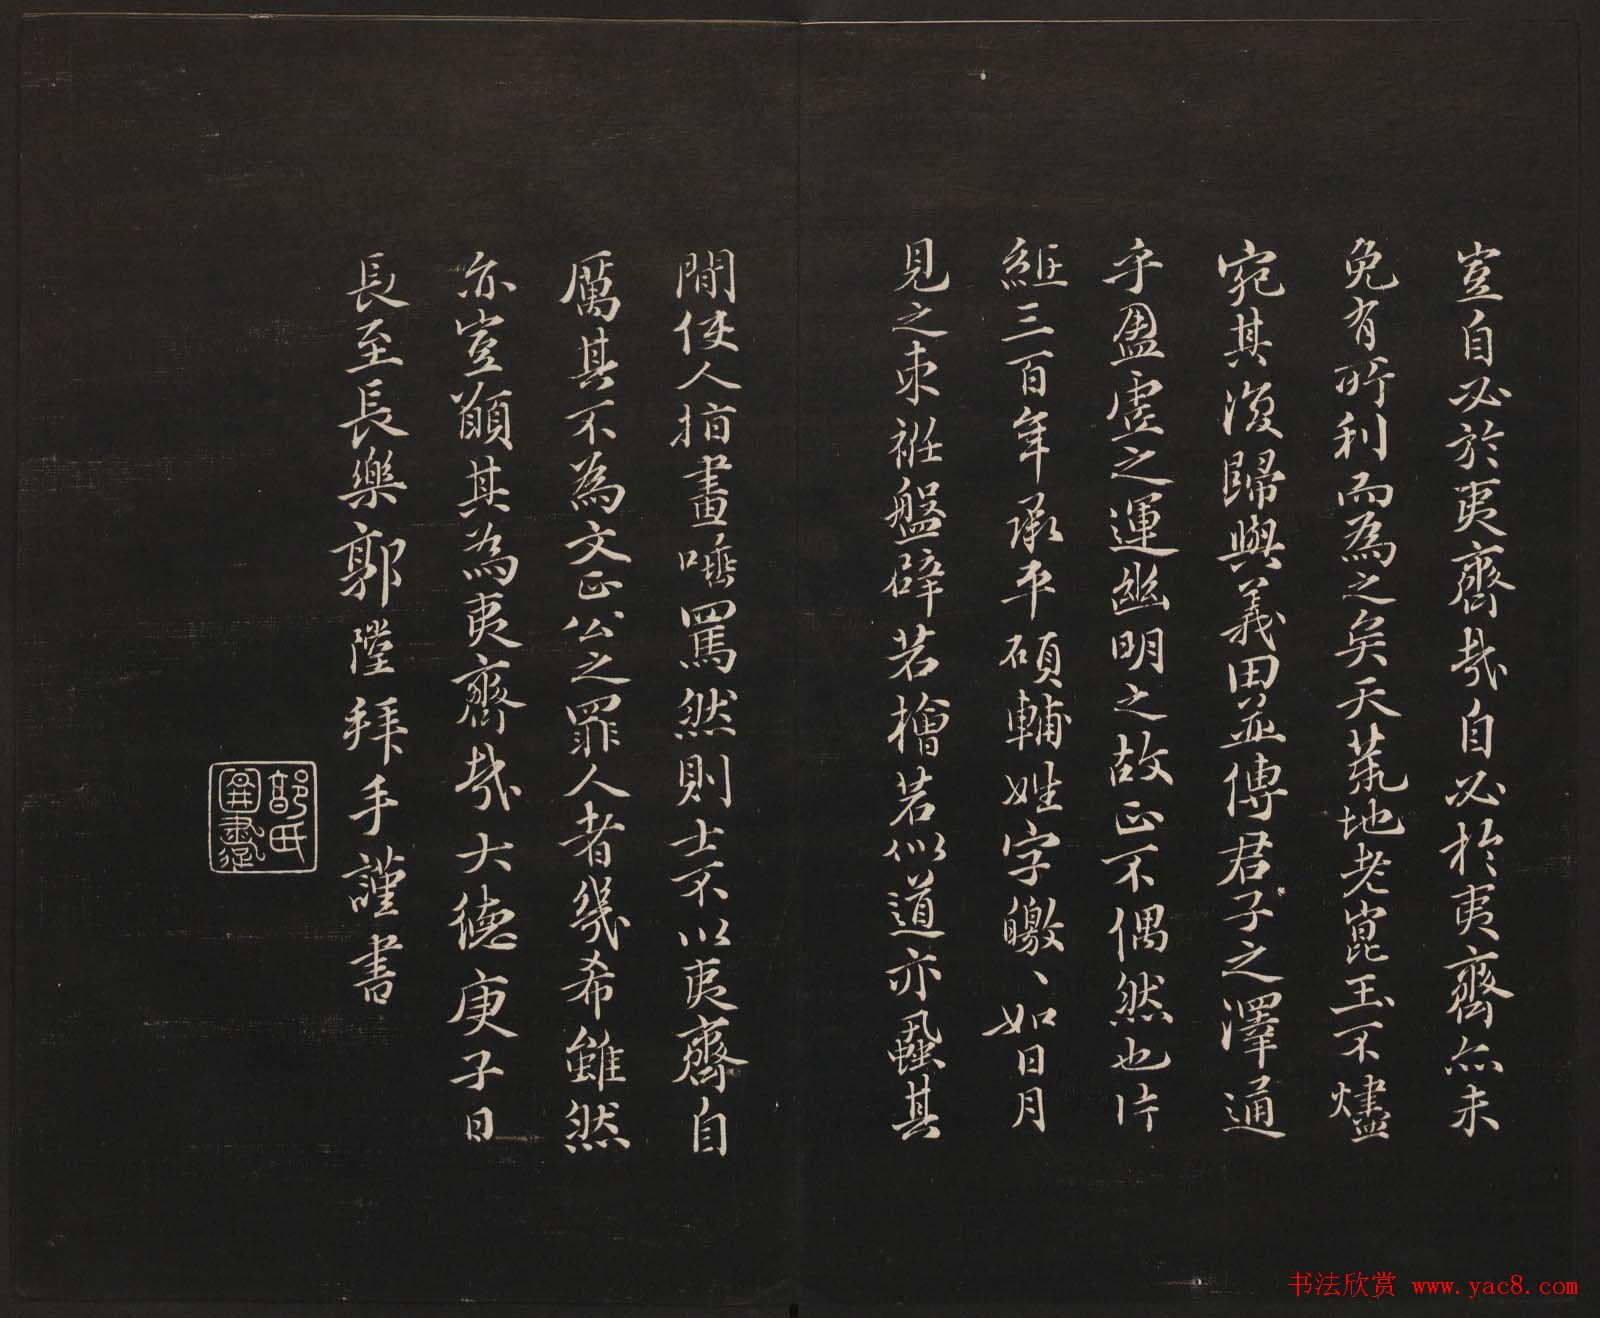 豈自必於夷齊哉自必於夷齊亦未
免有所利而為之矣天荒地老崑玉不燼
宛其復歸與義田並傳君子之澤通
乎盈虛之運幽明之故正不偶然也片
紙三百年承平碩輔姓字皦丶如日月
見之束袵盤辟若檜若似道亦蝨其
間使人指畫唾罵然則士不以夷齊自
厲其不為文正公之罪人者幾希雖然
亦豈願其為夷齊哉大德庚子日
長至長樂郭隚拜手謹書
郭氏
書法欣赏 www.yac8.com